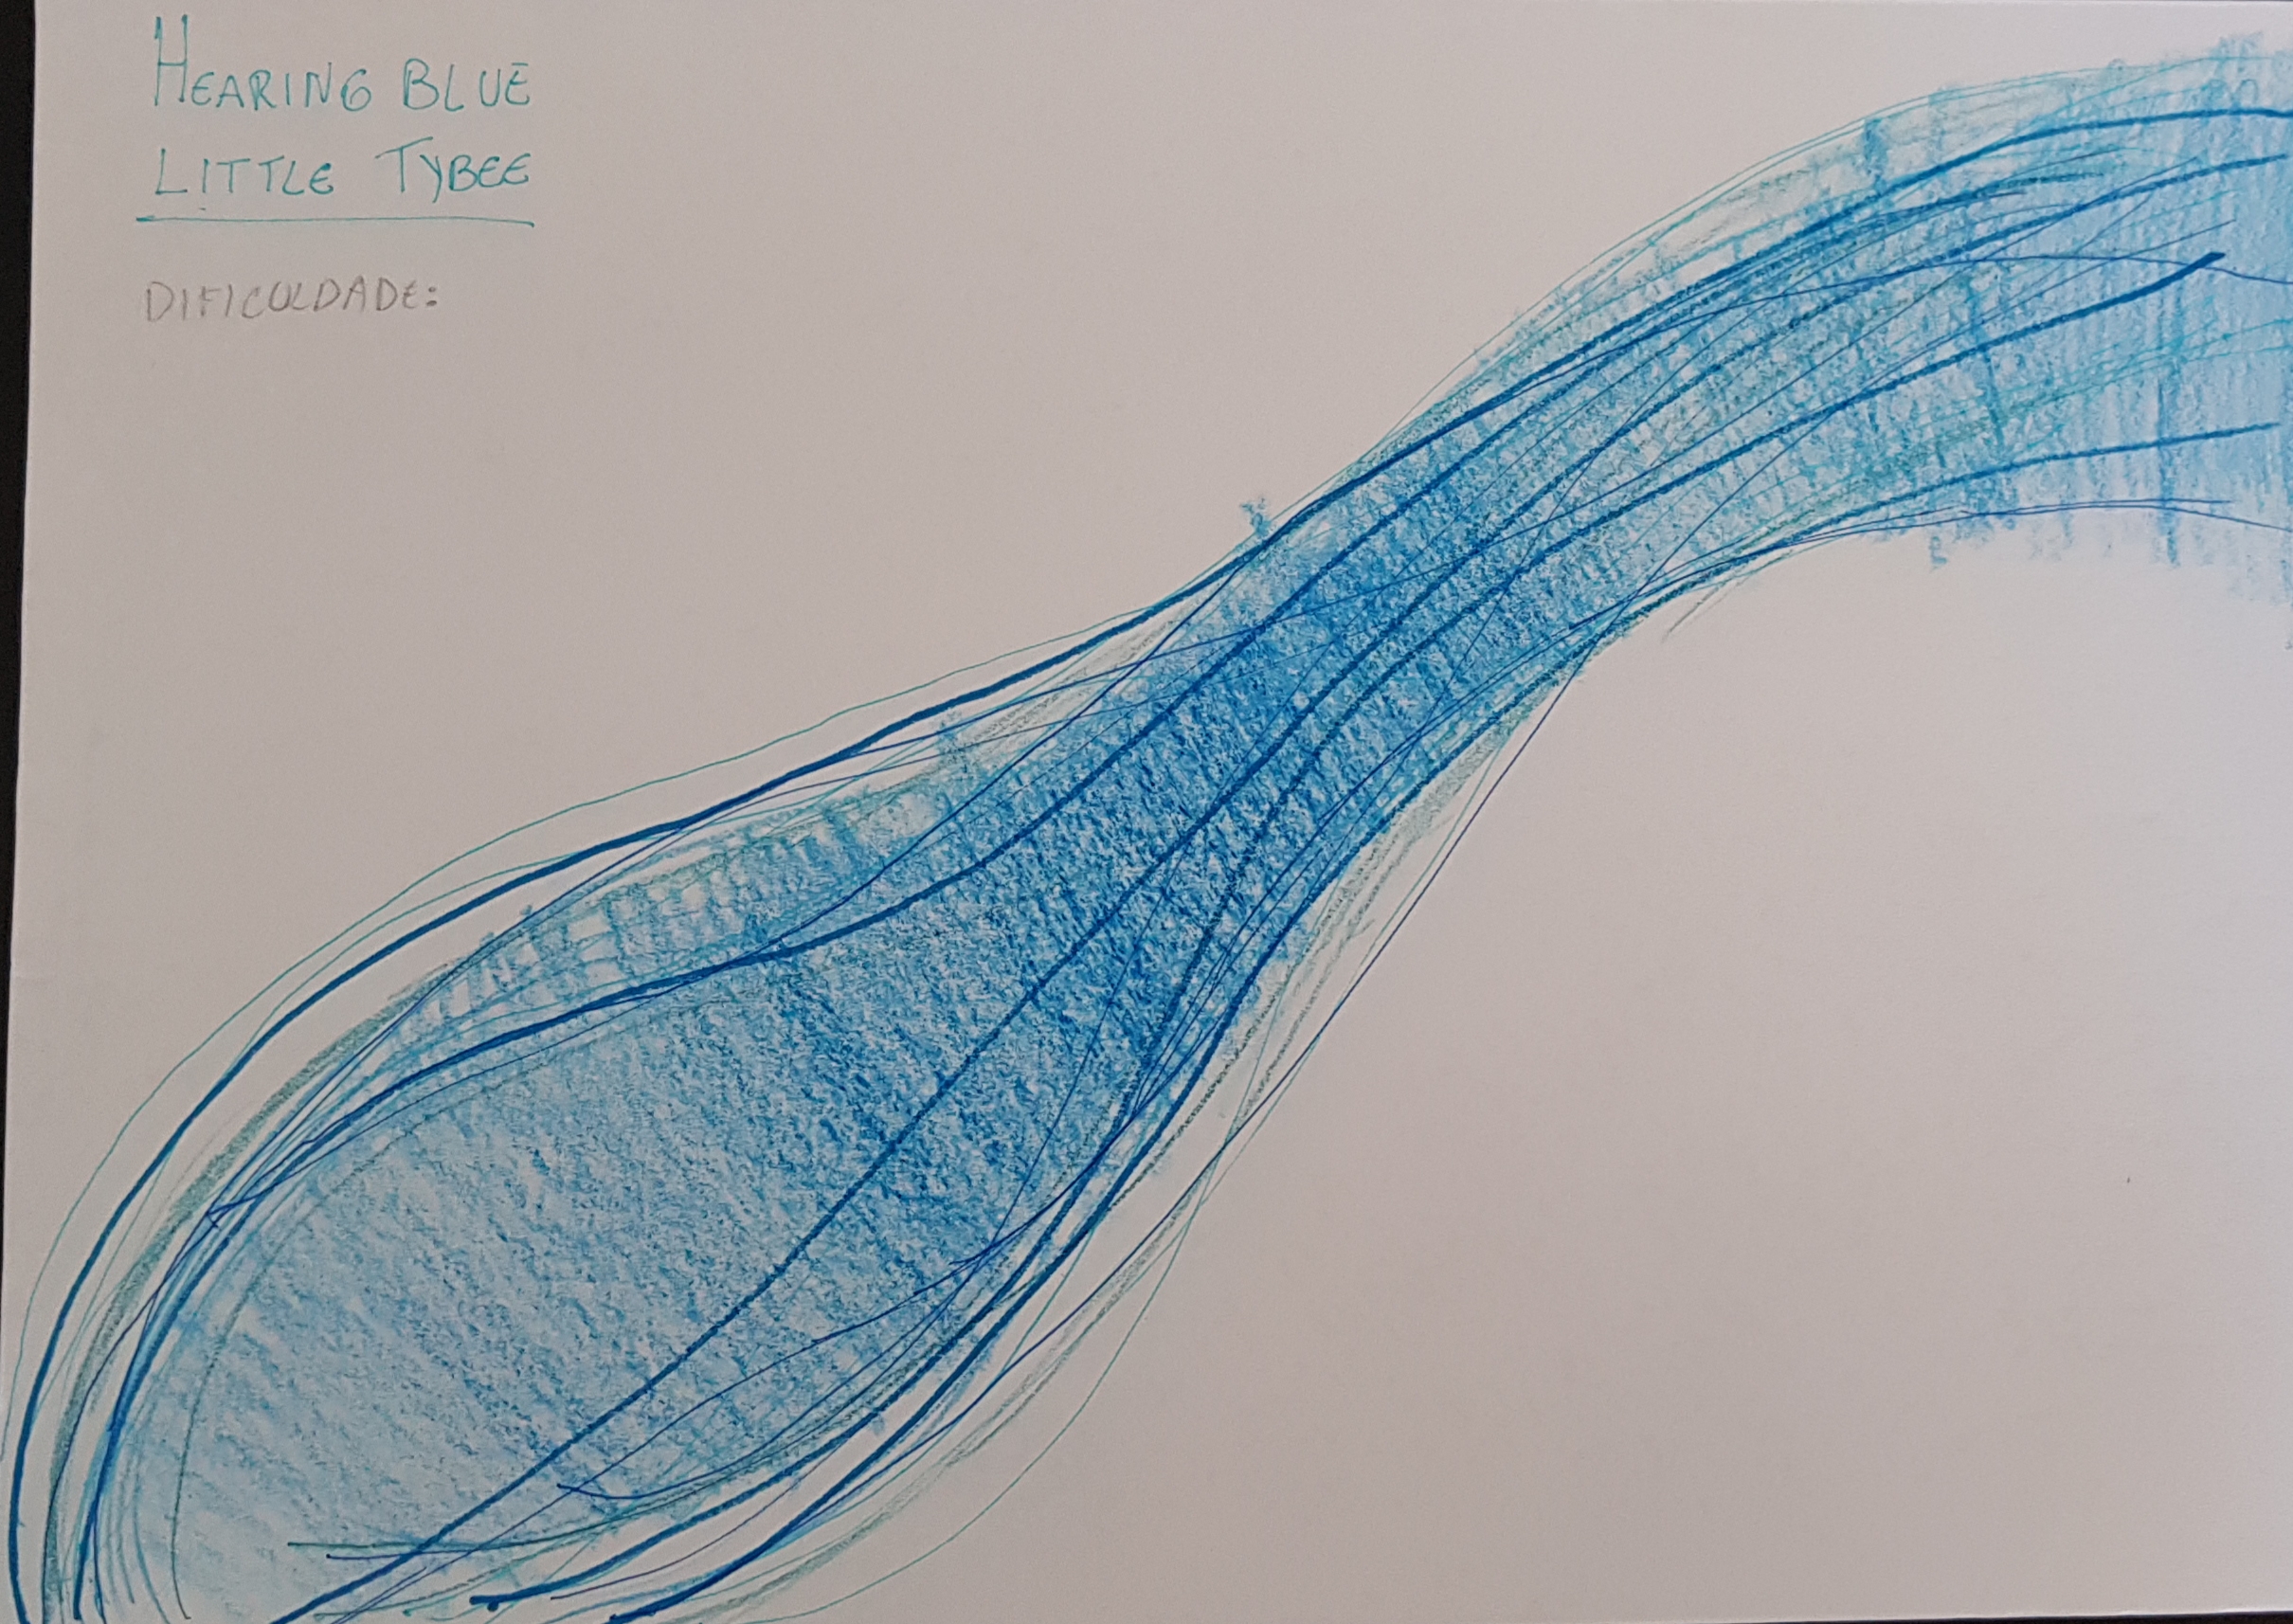 HEARING BLUE
LITTLE TYBEE
DIFICULDADE: